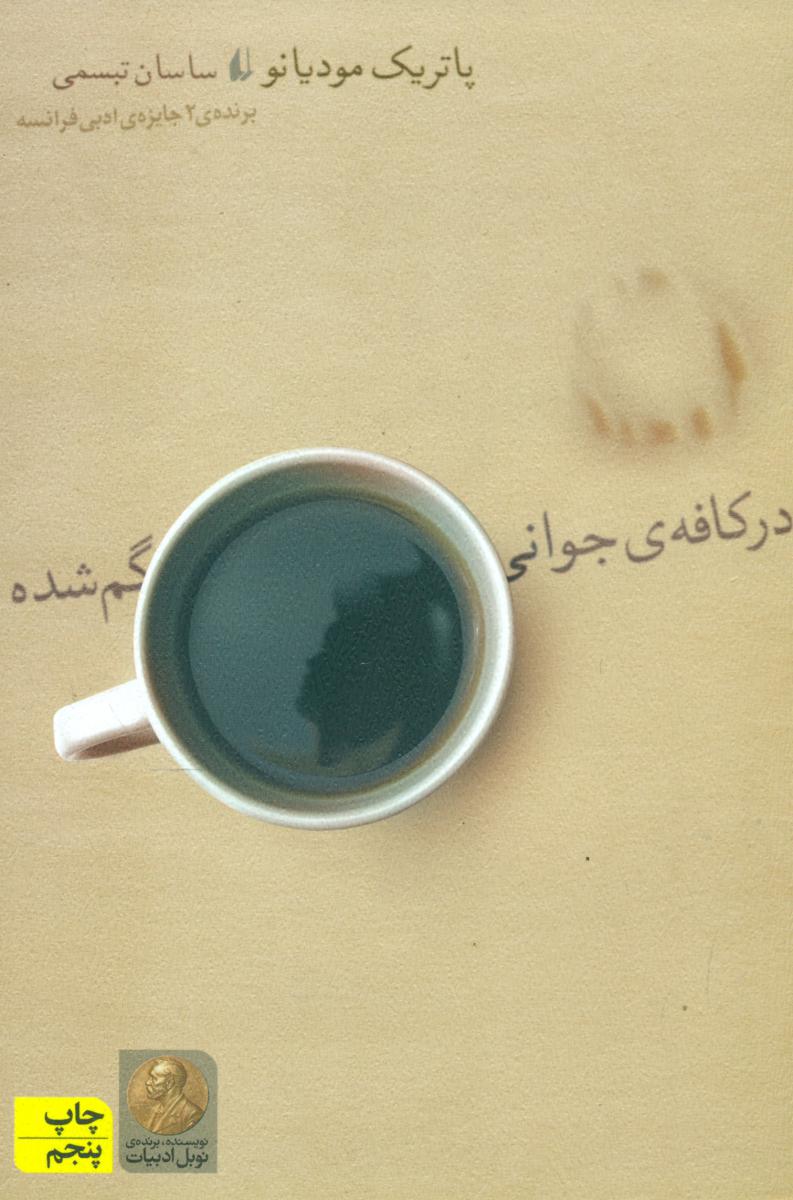 پاتریک مودیانو ساسان تبسمی
برنده‌ی ۲ جایزه‌ی ادبی فرانسه
در کافه‌ی جوانی گم‌شده
نویسنده، برنده‌ی
نوبل ادبیات
چاپ
پنجم